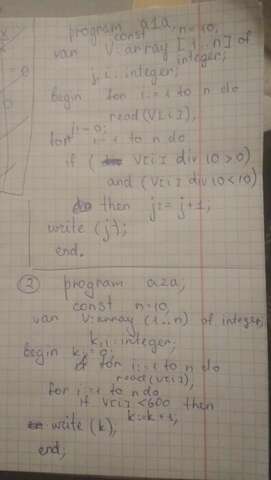 program a1a,
const n=10,
var V: array [1..n] of
integer;
j,i: integer;
begin for i:=1 to n do
read (V[i]),
j:=0;
for i:=1 to n do
if (V[i] div 10 > 0)
and (V[i] div 10 < 10)
then j:= j+1,
write (j);
end.
② program a2a,
const n=10,
var V: array (1..n) of integer;
k,i: integer;
begin k:=0;
for i:=1 to n do
read (V[i]),
for i:=1 to n do
if V[i] < 600 then
k:=k+1,
write (k),
end;